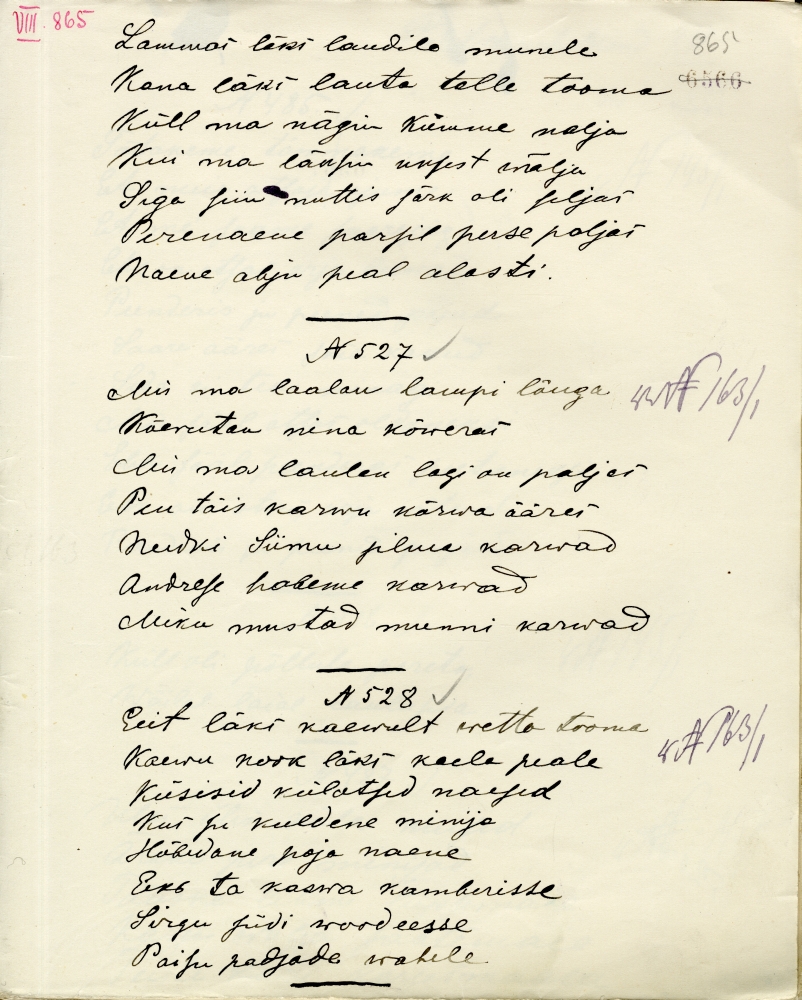 VIII. 865
865
6566
Lammas läks laudile munele
Kana läks lauta talle tooma
Küll ma nägin kümme nalja
Kui ma läksin uksest wälja
Siga siin nuttis särk oli seljas
Perenaene parsil perse paljas
Naene ahju peal alasti.
N 527
Mis ma laalan laupi lõuga
Käerutan nina köweras
Mis ma laulan lagi on paljas
Piu täis karwu kõrwa ääres
Nudki Siimu silma karwad
Andrese habeme karwad
Miku mustad munni karwad
N 528
Eit läks kaewult wetta tooma
Kaewu kook läks kaela peale
Küsisid külatsed naesed
Kus se kuldene minija
Hõbedane poja naene
Eks ta kaswa kamberisse
Sirgu südi woodeesse
Paisu padjade wahele